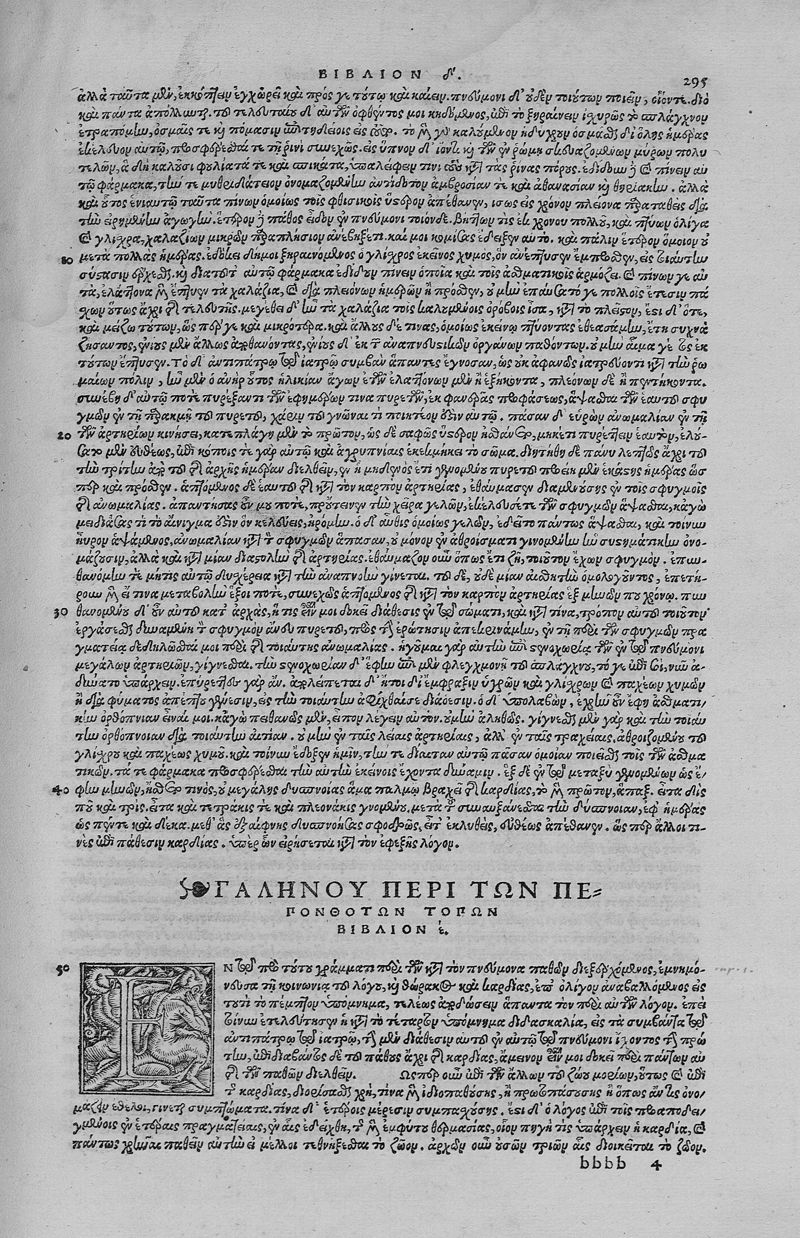 ΒΙΒΛΙΟΝ δ'. 295
ἀλλὰ ταῦτα μὲν, ἐκκόπτειν ἐγχωρεῖ καὶ πρός γε τούτῳ καὶ καίειν. πνεύμονι δ' οὐδὲν τούτων ποιεῖν, οἷόν τε. διὸ
καὶ πάντα ἀπόλλυται. τοῦ τελευταίου δ' αὐτῶν ὀφθέντος μοι κηδόμενος, ἐπὶ τὸ ξηραίνειν ἰσχυρῶς τὸ σπλάγχνον
ἐτραπόμην, ὀσμαῖς τε καὶ πόμασιν ἐπιτηδείοις εἰς τοῦτο. τὸ μὲν γὰρ καλούμενον ἡδύχρουν ὀσμᾶσθαι δι' ὅλης ἡμέρας
ἐκέλευον αὐτῷ, προσφέρεσθαί τε τῇ ῥινὶ συνεχῶς. εἰς ὕπνον δ' ἰόντι καὶ τῶν ἐν ῥώμῃ σκευαζομένων μύρων πολυ
τελῶν, ἃ δὴ καλοῦσι φουλίατά τε καὶ σπικάτα, ὑπαλείφειν τινὶ τούτων κατὰ τὰς ῥῖνας πόρους. ἐδίδουν καὶ πίνειν αὐ
τῷ φάρμακα, τήν τε μιθριδάτειον ὀνομαζομένην ἀντίδοτον ἀμβροσίαν τε καὶ ἀθανασίαν καὶ θηριακήν. ἀλλὰ
καὶ οὗτος ἐνιαυτῷ ταῦτα πίνων ὁμοίως τοῖς φθισικοῖς ὕστερον ἀπέθανεν, ἴσως εἰς χρόνον πλείονα παραταθεὶς διὰ
τὴν εἰρημένην ἀγωγήν. ἕτερον πάθος εἶδον ἐν πνεύμονι τοιόνδε. βήττων τις ἐκ χρόνου πολλοῦ, καὶ πτύων ὀλίγα
καὶ γλίσχρα, χαλαζίων μικρῶν παραπλήσιον ἀνέβηξέ τι. καί μοι κομίσας ἔδειξεν αὐτό. καὶ πάλιν ἕτερον ὅμοιον οὐ
10 μετὰ πολλὰς ἡμέρας. ἐδόκει δή μοι ξηραινόμενος ὁ γλίσχρος ἐκεῖνος χυμὸς, ὃν ἀνέπτυσεν ἔμπροσθεν, εἰς τοιαύτην
σύστασιν ἔρχεσθαι. καὶ διὰ τοῦτ' αὐτῷ φάρμακα ἐδίδουν πίνειν ὁποῖα καὶ τοῖς ἀσθματικοῖς ἁρμόζει. καὶ πίνων γε αὐ
τὰ, ἐλάττονα μὲν ἔπτυεν τὰ χαλάζια, καὶ διὰ πλειόνων ἡμερῶν ἢ πρόσθεν, οὐ μὴν ἐπαύσατό γε πολλοῖς ἔτεσιν πά
σχων οὕτως ἄχρι τῆς τελευτῆς. μεγέθει δ' ἦν τὰ χαλάζια τοῖς καλουμένοις ὀρόβοις ἴσα, κατὰ τὸ πλεῖστον, ἔστι δ' ὅτε,
καὶ μείζω τούτων, ὥσπερ γε καὶ μικρότερα. καὶ ἄλλους δέ τινας, ὁμοίως ἐκείνῳ πτύοντας ἐθεασάμην, ἔτη συχνὰ
ζήσαντας, ἐνίους μὲν ἄλλως ἀποθανόντας, ἐνίους δ' ἐκ τῶν ἀναπνευστικῶν ὀργάνων παθόντων. οὐ μὴν αἷμά γε τις ἐκ
τούτων ἔπτυσεν. τὸ δ' ἀντιπάτρῳ τῷ ἰατρῷ συμβὰν ἅπαντες ἔγνωσαν, ὡς οὐκ ἀφανῶς ἰατρεύοντι κατὰ τὴν ῥω
μαίων πόλιν, ἦν μὲν ὁ ἀνὴρ οὗτος ἡλικίαν ἄγων ἐτῶν ἐλαττόνων μὲν ἢ ἑξήκοντα, πλεόνων δὲ ἢ πεντήκοντα.
συνέβη δ' αὐτῷ ποτε πυρέξαντι τῶν ἐφημέρων τινὰ πυρετῶν, ἐκ φανερᾶς προφάσεως, ἅψασθαι τῶν ἑαυτοῦ σφυ
γμῶν ἐν τῇ παρακμῇ τοῦ πυρετοῦ, χάριν τοῦ γνῶναι τί ποιητέον εἴη αὐτῷ. πᾶσαν δ' εὑρὼν ἀνωμαλίαν ἐν τῇ
20 τῶν ἀρτηριῶν κινήσει, κατεπλάγη μὲν τὸ πρῶτον, ὡς δὲ σαφῶς ὕστερον ᾔσθανετο, μηκέτι πυρέττειν ἑαυτὸν, ἐλού
σατο μὲν εὐθέως, ἐπὶ κόποις τε γὰρ αὐτῷ καὶ ἀγρυπνίαις ἐκεκμήκει τὸ σῶμα. διῃτήθη δὲ πάνυ λεπτῶς ἄχρι τοῦ
τὴν τρίτην ἀπὸ τῆς ἀρχῆς ἡμέραν διελθεῖν, ἐν ᾗ μηδενὸς ἔτι γενομένου πυρετοῦ προῄει μὲν ἑκάστης ἡμέρας ὥσ
περ καὶ πρόσθεν. ἁπτόμενος δὲ ἑαυτοῦ τῆς κατὰ τὸν καρπὸν ἀρτηρίας, ἐθαύμασεν διαμενούσης ἐν τοῖς σφυγμοῖς
τῆς ἀνωμαλίας. ἀπαντήσας οὖν μοί ποτε, προὔτεινεν τὴν χεῖρα γελῶν, ἐκέλευσέ τε τῶν σφυγμῶν ἅψασθαι, κἀγὼ
μειδιάσας τί τὸ αἴνιγμα εἴη ὃν κελεύεις, ἠρόμην. ὁ δ' αὖθις ὁμοίως γελῶν, ἐδεῖτο πάντως ἅψασθαι, καὶ τοίνυν
ηὗρον ἁψάμενος, ἀνωμαλίαν κατὰ τὸν σφυγμὸν ἅπασαν, οὐ μόνον ἐν ἀθροίσματι γινομένην ἣν συστηματικὴν ὀνο
μάζουσιν, ἀλλὰ καὶ κατὰ μίαν διαστολὴν τῆς ἀρτηρίας. ἐθαύμαζον οὖν ὅπως ἔτι ζῇ, τοιοῦτον ἔχων σφυγμόν. ἐπυν
θανόμην τε μή τις αὐτῷ δυσχέρεια κατὰ τὴν ἀναπνοὴν γίνεται. τοῦ δὲ, οὐδεμίαν αἰσθητὴν ὁμολογοῦντος, ἐπετή
ρουν μὲν εἴ τινα μεταβολὴν ἕξοι ποτὲ, συνεχῶς ἁπτόμενος τῆς κατὰ τὸν καρπὸν ἀρτηρίας ἓξ μηνῶν που χρόνῳ. πυν
30 θανομένου δ' οὖν αὐτοῦ κατ' ἀρχὰς, ἥ τις εἶναί μοι δοκεῖ διάθεσις ἐν τῷ σώματι, καὶ κατὰ τίνα, τρόπον αὐτὸ τοιοῦτον
ἐργάσεσθαι δυναμένη τὸν σφυγμὸν ἄνευ πυρετοῦ, πρὸς τὴν ἐρώτησιν ἀπεκρινάμην, ἐν τῇ περὶ τῶν σφυγμῶν πρα
γματείᾳ δεδηλῶσθαί μοι περὶ τῆς τοιαύτης ἀνωμαλίας. ἡγοῦμαι γὰρ αὐτὴν ἐπὶ στενοχωρίᾳ τῶν ἐν τῷ πνεύμονι
μεγάλων ἀρτηριῶν, γίγνεσθαι. τὴν στενοχωρίαν δ' ἔφην ἐπὶ μὲν φλεγμονῇ τοῦ σπλάγχνου, τό γε ἐπὶ σοὶ, νῦν ἀ
δύνατον ὑπάρχειν. ἐπύρεττες γὰρ ἄν. ἀπολείπεται δ' ἤτοι δι' ἔμφραξιν ὑγρῶν καὶ γλίσχρων καὶ παχέων χυμῶν
ἢ διὰ φύματος ἀπέπτου γένεσιν, εἰς τὴν τοιαύτην ἀφῖχθαί σε διάθεσιν. ὁ δ' ὑπολαβὼν, ἐχρῆν οὖν ἔφη ἀσθματι
κὴν ὀρθόπνοιαν εἶναί μοι. κἀγὼ πιθανῶς μὲν, εἶπον λέγειν αὐτὸν. οὐ μὴν ἀληθῶς. γίγνεσθαι μὲν γὰρ καὶ τὴν τοιαύ
την ὀρθόπνοιαν διὰ τοιαύτην αἰτίαν. οὐ μὴν ἐν ταῖς λείαις ἀρτηρίαις, ἀλλ' ἐν ταῖς τραχείαις, ἀθροιζομένου τοῦ
γλίσχρου καὶ παχέως χυμοῦ. καὶ τοίνυν ἔδοξεν ἡμῖν, τήν τε δίαιταν αὐτῷ πᾶσαν ὁμοίαν ποιεῖσθαι τοῖς τῶν ἀσθμα
τικῶν, τά τε φάρμακα προσφέρεσθαι τὴν αὐτὴν ἐκείνοις ἔχοντα δύναμιν. ἓξ δὲ ἐν τῷ μεταξὺ γενομένων ὡς ἔ
40 φην μηνῶν, ᾔσθετό τινος, οὐ μεγάλης δυσπνοίας ἅμα παλμῷ βραχεῖ τῆς καρδίας, τὸ μὲν πρῶτον, ἅπαξ. εἶτα δίς
που καὶ τρίς. εἶτα καὶ τετράκις τε καὶ πλεονάκις γενομένου, μετὰ τοῦ συναυξάνεσθαι τὴν δύσπνοιαν, ἐφ' ἡμέρας
ὡς πέντε καὶ δέκα. μεθ' ἃς ἐξαίφνης δυσπνοήσας σφοδρῶς, εἶτ' ἐκλυθεὶς, εὐθέως ἀπέθανεν. ὥσπερ ἄλλοι τι
νὲς ἐπὶ πάθεσιν καρδίας. ὑπὲρ ὧν εἰρήσεται κατὰ τὸν ἐφεξῆς λόγον.
ΓΑΛΗΝΟΥ ΠΕΡΙ ΤΩΝ ΠΕ=
ΠΟΝΘΟΤΩΝ ΤΟΠΩΝ
ΒΙΒΛΙΟΝ ε.
50 ΕΝ τῷ πρὸ τούτου γράμματι περὶ τῶν κατὰ τὸν πνεύμονα παθῶν διεξερχόμενος, ἐμνημό
νευσα τῇ κοινωνίᾳ τοῦ λόγου, καὶ θώρακος καὶ καρδίας, ὑπὸ ὀλίγον ἀναβαλλόμενος εἰς
τουτὶ τὸ πέμπτον ὑπόμνημα, τελέως ἀποδώσειν ἅπαντα τὸν περὶ αὐτῶν λόγον. ἐπεὶ
τοίνυν ἐτελεύτησεν ἡ κατὰ τὸ τέταρτον ὑπόμνημα διδασκαλία, εἰς τὰ συμβάντα τῷ
ἀντιπάτρῳ τῷ ἰατρῷ, τὴν μὲν διάθεσιν αὐτοῦ ἐν αὐτῷ τῷ πνεύμονι ἔχοντος τὴν πρώ
την, ἐπιδιαβάντος δὲ τοῦ πάθους ἄχρι τῆς καρδίας, ἄμεινον εἶναί μοι δοκεῖ περὶ πάντων αὐ
τῆς τῶν παθῶν διελθεῖν. Ὥσπερ οὖν ἐπὶ τῶν ἄλλων τοῦ ζώου μορίων, οὕτως καὶ ἐπὶ
τῆς καρδίας, διορίσασθαι χρὴ, τίνα μὲν ἰδιοπαθούσης, ἢ πρωτοπαθούσης ἢ ὅπως ἄν τις ὀνο
μάζειν ἐθέλοι, γίνεται συμπτώματα. τίνα δ' ἑτέροις μέρεσιν συμπασχούσης. ἔστι δ' ὁ λόγος ἐπὶ τοῖς προαποδε
γμένοις ἐν ἑτέραις πραγματείαις, ἐν αἷς ἐδείχθη, τῆς μὲν ἐμφύτου θερμασίας, οἷον πηγή τις ὑπάρχειν ἡ καρδία, καὶ
πάντως χρῆναι παθεῖν αὐτὴν εἰ μέλλοι τεθνήξεσθαι τὸ ζῶον. ἀρχῶν οὖν οὐσῶν τριῶν αἷς διοικεῖται τὸ ζῶον.
bbbb 4